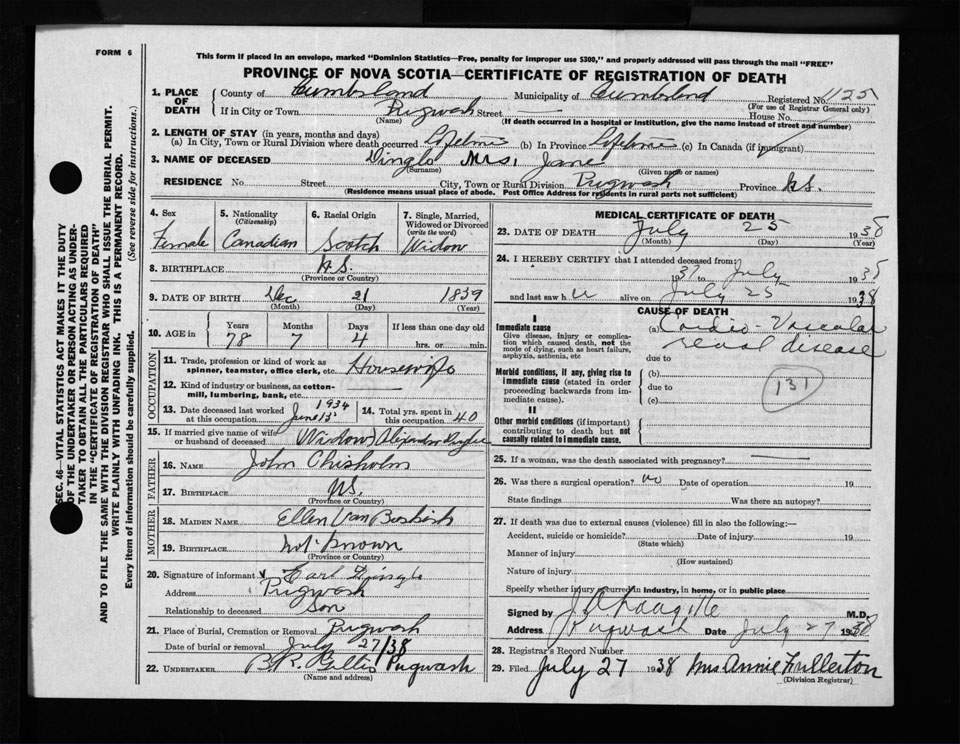 FORM 6
This form if placed in an envelope, marked "Dominion Statistics—Free, penalty for improper use $300," and properly addressed will pass through the mail "FREE"
PROVINCE OF NOVA SCOTIA—CERTIFICATE OF REGISTRATION OF DEATH
1. PLACE OF DEATH
County of Cumberland Municipality of Cumberland Registered No. 1125
(For use of Registrar General only)
If in City or Town Pugwash Street House No.
(Name) (If death occurred in a hospital or institution, give the name instead of street and number)
2. LENGTH OF STAY (in years, months and days)
(a) In City, Town or Rural Division where death occurred Lifetime (b) In Province Lifetime (c) In Canada (if immigrant)
3. NAME OF DECEASED Dingle Mrs. Jane
(Surname) (Given name or names)
RESIDENCE No. Street City, Town or Rural Division Pugwash Province N.S.
(Residence means usual place of abode. Post Office Address for residents in rural parts not sufficient)
4. Sex
Female
5. Nationality
(Citizenship)
Canadian
6. Racial Origin
Scotch
7. Single, Married, Widowed or Divorced
(write the word)
Widow
8. BIRTHPLACE N.S.
(Province or Country)
9. DATE OF BIRTH Dec 21 1839
(Month) (Day) (Year)
10. AGE in
Years Months Days If less than one day old
78 7 4 hrs. or min.
OCCUPATION
11. Trade, profession or kind of work as
spinner, teamster, office clerk, etc. Housewife
12. Kind of industry or business, as cotton-
mill, lumbering, bank, etc.
13. Date deceased last worked
at this occupation June 13 1934
14. Total yrs. spent in
this occupation 40
15. If married give name of wife
or husband of deceased (Widow) Alexander
FATHER
16. NAME John Chisholm
17. BIRTHPLACE N.S.
(Province or Country)
MOTHER
18. MAIDEN NAME Ellen Van
19. BIRTHPLACE not known
(Province or Country)
20. Signature of informant Carl
Address Pugwash
Relationship to deceased Son
21. Place of Burial, Cremation or Removal Pugwash
Date of burial or removal July 27/38
22. UNDERTAKER Gillis Pugwash
(Name and address)
MEDICAL CERTIFICATE OF DEATH
23. DATE OF DEATH July 25 1938
(Month) (Day) (Year)
24. I HEREBY CERTIFY that I attended deceased from
1937 to July 193
and last saw h alive on July 25 1938
CAUSE OF DEATH
I
Immediate cause
Give disease, injury or complication which caused death, not the mode of dying, such as heart failure, asphyxia, asthenia, etc
(a) Cardio-Vascular
renal disease
due to
Morbid conditions, if any, giving rise to immediate cause (stated in order proceeding backwards from immediate cause).
(b)
due to
(c)
131
II
Other morbid conditions (if important) contributing to death but not causally related to immediate cause.
25. If a woman, was the death associated with pregnancy?
26. Was there a surgical operation? no Date of operation 19
State findings Was there an autopsy?
27. If death was due to external causes (violence) fill in also the following:—
Accident, suicide or homicide? Date of injury 19
(State which)
Manner of injury
(How sustained)
Nature of injury
Specify whether injury occurred in industry, in home, or in public place
Signed by M.D.
Address Pugwash Date July 27 1938
28. Registrar's Record Number
29. Filed July 27 1938 Mrs Annie Fullerton
(Division Registrar)
SEC. 46—VITAL STATISTICS ACT MAKES IT THE DUTY
OF THE UNDERTAKER OR PERSON ACTING AS UNDER-
TAKER TO OBTAIN ALL THE PARTICULARS REQUIRED
IN THE "CERTIFICATE OF REGISTRATION OF DEATH"
AND TO FILE THE SAME WITH THE DIVISION REGISTRAR WHO SHALL ISSUE THE BURIAL PERMIT.
WRITE PLAINLY WITH UNFADING INK. THIS IS A PERMANENT RECORD.
Every item of information should be carefully supplied. (See reverse side for instructions.)